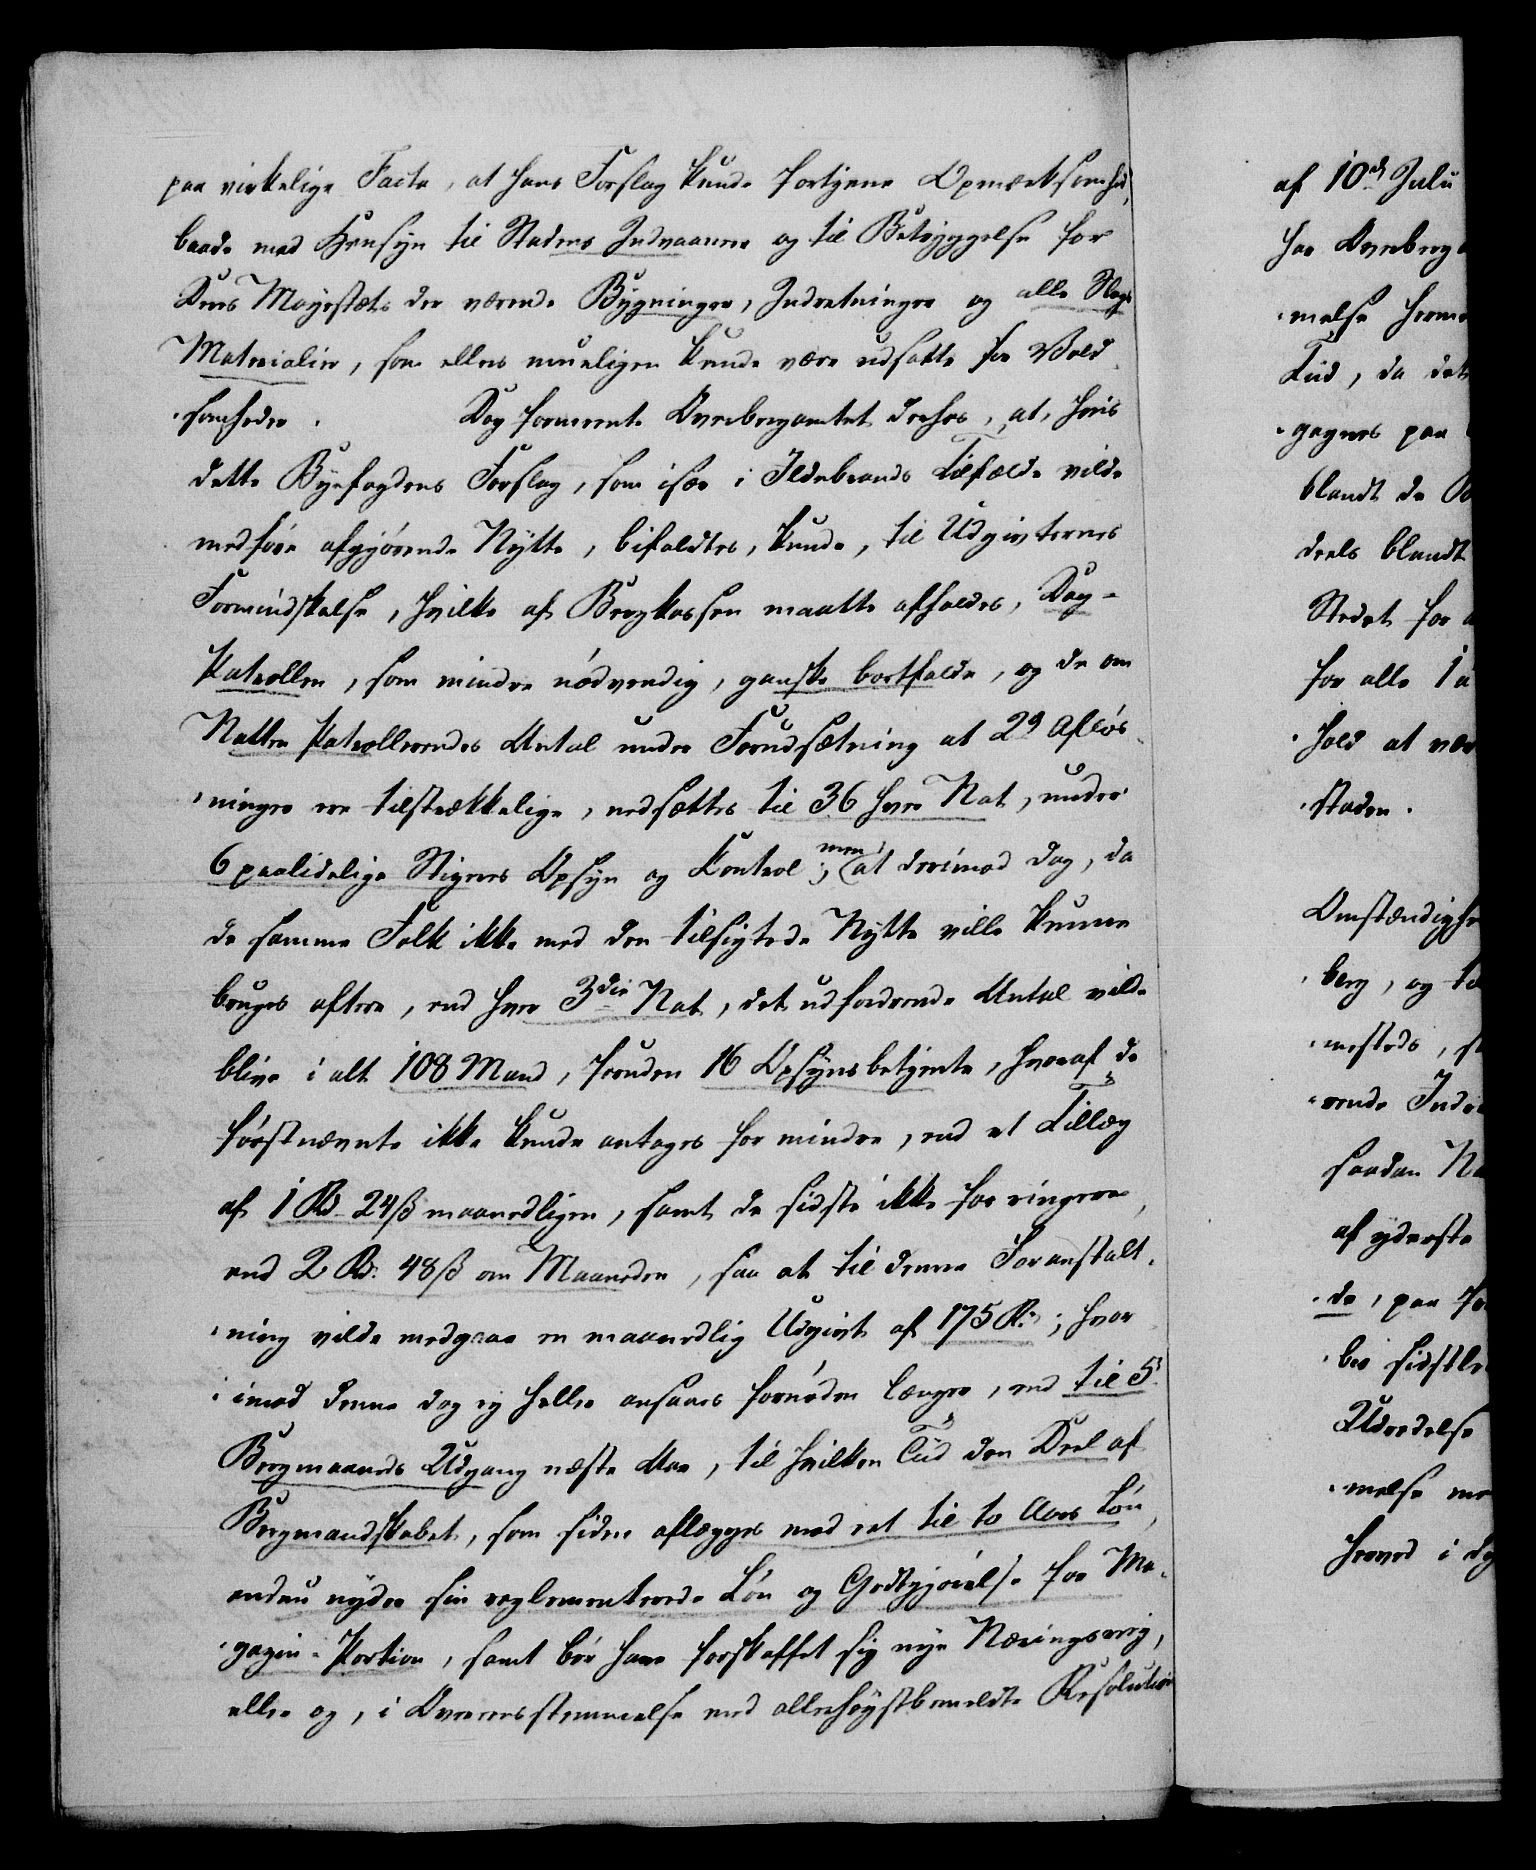 paa virkelige Facta, at hans Forslag kunde fortjene Opmærksomhed,
baade med Hensyn til Stadens Indvaanere og til Betryggelse for
Deres Mayestæts der værende Bygninger, Indretninger og alle Slags
Materialier, som ellers mueligen kunde være udsatte for Vold
somheder. Dog formeente Overbergamtet derhos, at, hvis
dette Byefogdens Forslag, som især i Ildebrands Tilfælde vilde
medføre afgjørende Nytte, bifaldtes, kunde, til Udgivternes
Formindskelse, hvilke af Bergkassen maatte afholdes, Dag-
Patrollen, som mindre nödvendig, ganske bortfalde, og de om
Natten Patrollerendes Antal under Forudsætning at 2de Afløs
ninger ere tilstrækkelige, nedsættes til 36 hver Nat, under
6 paalidelige Stigeres Opsyn og Kontrol; men at derimod dog, da
de samme Folk ikke med den tilsigtede Nytte ville kunne
bruges oftere, end hver 3die Nat, det udfordrende Antal vilde
blive i alt 108 Mand, foruden 16 Opsynsbetjente, hvoraf de
førstnævnte ikke kunde antages for mindre, end et Tillæg
af 1 Rd. 24 ß maanedligen, samt de sidste ikke for ringere,
end 2 Rd. 48 ß om Maaneden, saa at til denne Foranstalt-
ning vilde medgaae en maanedlig Udgivt af 175 Rd.; hvor
imod denne dog ey heller ansaaes fornøden længere, end til 5
Bergmaaneds Udgang næste Aar, til hvilken Tiid den Deel af
Bergmandskabet, som siden aflægges med eet til to Aars Løn,
endnu nyder sin reglementerede Løn og Godtgjørelse for Ma-
gazin-Portion, samt bør have forskaffet sig nye Næringsvey,
eller og, i Overeensstemmelse med allerhøystbemeldte Resolution
af 10de Juli
har Overberg
melse herme
Tiid, da det
gagnes paa
blandt de B
deels blandt
Stedet for a
for alle 1 a
hold at vær
staden.
Omstændighe
berg, og til
mesteds, s
rende Indre
saadan N
af yderste
de, paa fo
ber sidstle
Udredelse
melse me
herved i dy